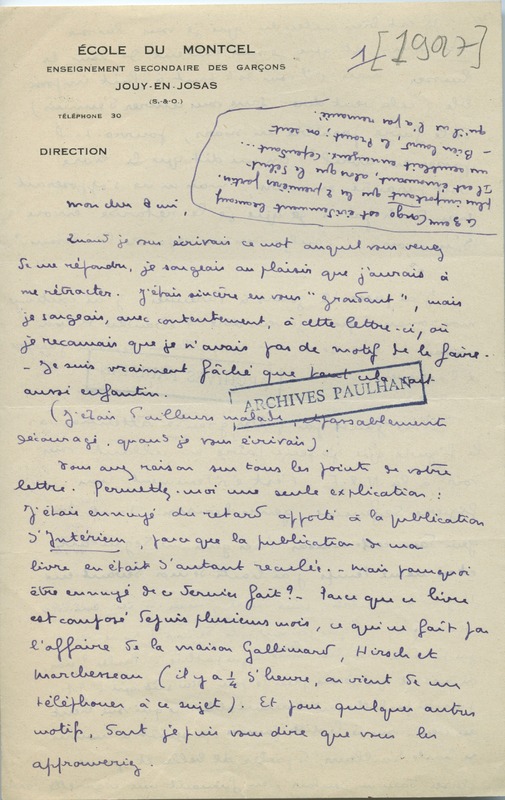 ÉCOLE DU MONTCEL
ENSEIGNEMENT SECONDAIRE DES GARÇONS
JOUY-EN-JOSAS
(S.-&-O.)
TÉLÉPHONE 30
DIRECTION
1 [1927]
Ce 3eme Congo est évidemment beaucoup
plus important que les 2 premières parties.
Il est étonnant, alors que le début
me semblait ennuyeux. Cependant...
- Bien lourd, le Proust; on sent
qu'il ne l'a pas remanié.
mon cher ami,
Quand je vous écrivais ce mot auquel vous venez
de me répondre, je songeais au plaisir que j'aurais à
me rétracter. J'étais sincère en vous "grondant", mais
je songeais, avec contentement, à cette lettre-ci, où
je reconnais que je n'avais pas de motif de le faire.
- Je suis vraiment fâché que tout cela soit
aussi enfantin.
ARCHIVES PAULHAN
(J'étais d'ailleurs malade, et passablement
découragé, quand je vous écrivais).
Vous avez raison sur tous les points de votre
lettre. Permettez-moi une seule explication :
J'étais ennuyé du retard apporté à la publication
d'Intérieur, parce que la publication de mon
livre en était d'autant reculée. - mais pourquoi
être ennuyé de ce dernier fait? - Parce que ce livre
est composé depuis plusieurs mois, ce qui ne fait pas
l'affaire de la maison Gallimard, Hirsch et
Marchesseau (il y a 1/4 d'heure, on vient de me
téléphoner à ce sujet). Et pour quelques autres
motifs, dont je puis vous dire que vous les
approuveriez.